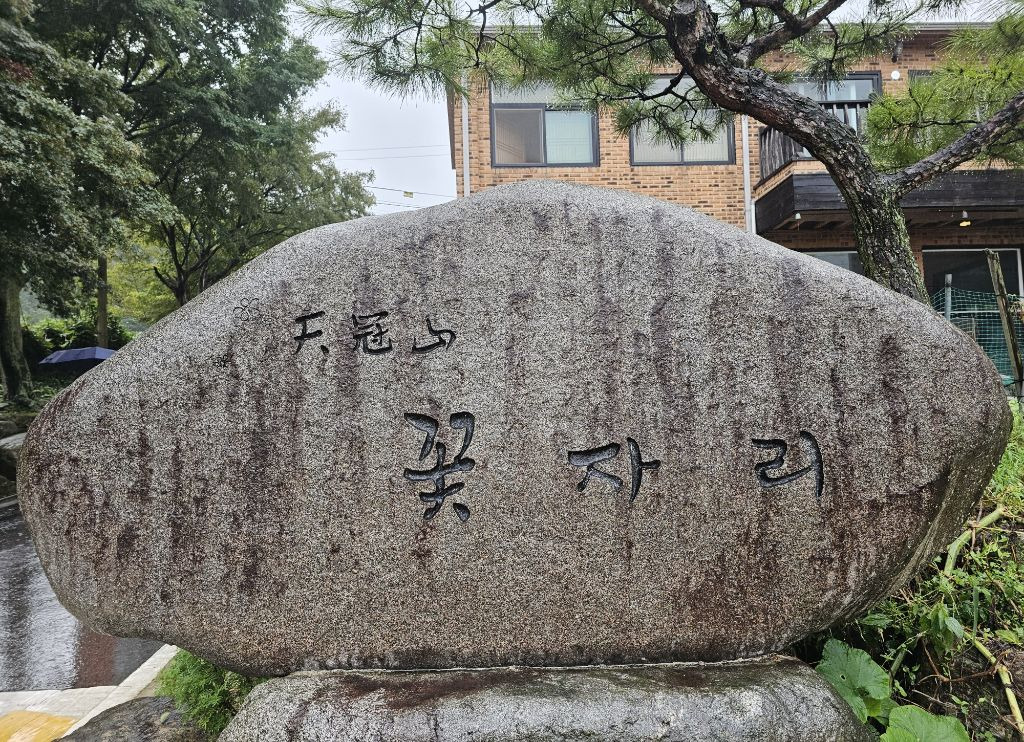 天冠山
꽃자리